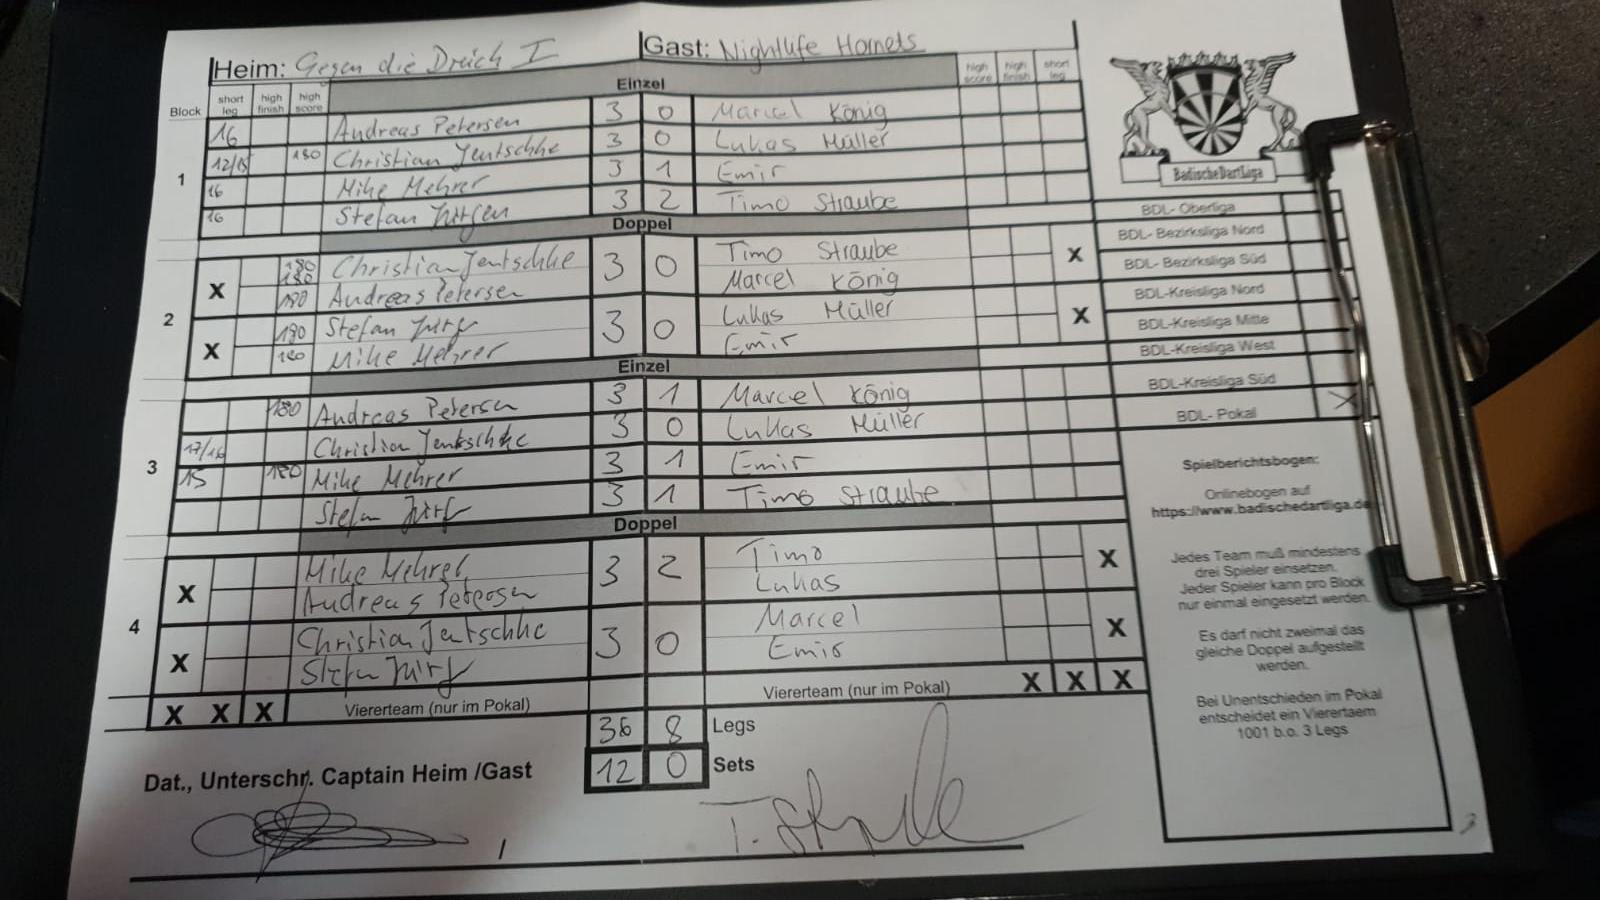 Heim: Gegen die Drück I Gast: Nightlife Hornets
Block short leg high finish high score Einzel high score high finish short leg
16 Andreas Petersen 3 0 Marcel König
180 Christian Jentschke 3 0 Lukas Müller
1
16 Mike Mehrer 3 1 Emir
16 Stefan 3 2 Timo Straube
Doppel
X 180 180 Christian Jentschke 3 0 Timo Straube X
180 Andreas Petersen Marcel König
2
X 180 Stefan 3 0 Lukas Müller X
180 Mike Mehrer Emir
Einzel
180 Andreas Petersen 3 1 Marcel König
17/16 Christian Jentschke 3 0 Lukas Müller
3
15 180 Mike Mehrer 3 1 Emir
Stefan 3 1 Timo Straube
Doppel
X Mike Mehrer 3 2 Timo X
Andreas Petersen Lukas
4
X Christian Jentschke 3 0 Marcel X
Stefan Emir
X X X Viererteam (nur im Pokal) Viererteam (nur im Pokal) X X X
36 8 Legs
12 0 Sets
Dat., Unterschr. Captain Heim /Gast
/ T. Straube
BadischeDartLiga
BDL- Oberliga
BDL- Bezirksliga Nord
BDL- Bezirksliga Süd
BDL-Kreisliga Nord
BDL-Kreisliga Mitte
BDL-Kreisliga West
BDL-Kreisliga Süd
BDL- Pokal X
Spielberichtsbogen:
Onlinebogen auf
https://www.badischedartliga.de
Jedes Team muß mindestens
drei Spieler einsetzen.
Jeder Spieler kann pro Block
nur einmal eingesetzt werden.
Es darf nicht zweimal das
gleiche Doppel aufgestellt
werden.
Bei Unentschieden im Pokal
entscheidet ein Vierertaem
1001 b.o. 3 Legs